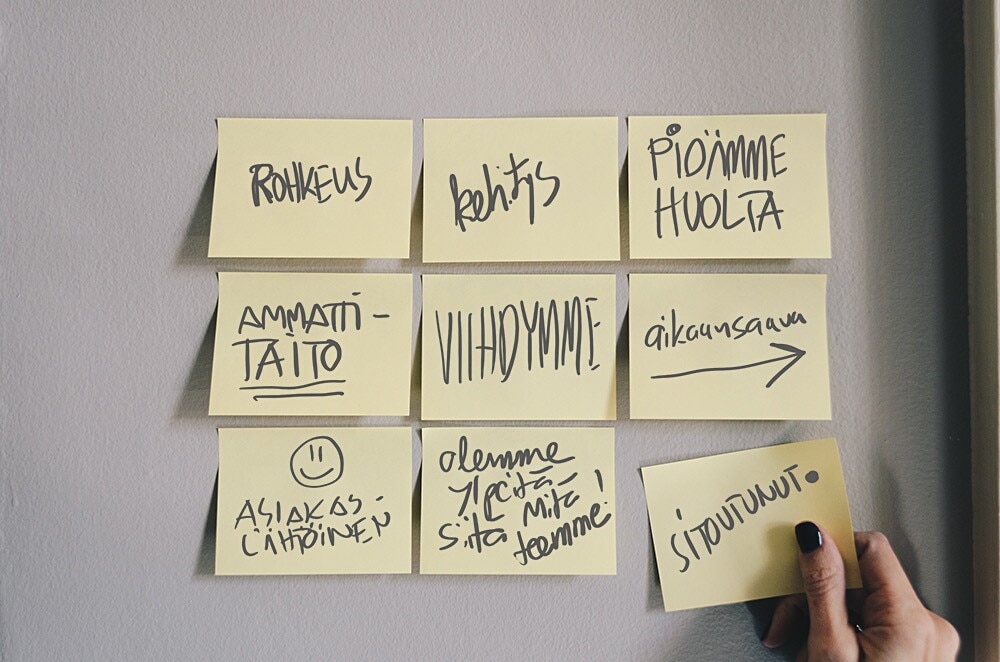 ROHKEUS
kehitys
PIDÄMME
HUOLTA
AMMATTI-
TAITO
VIIHDYMME
aikaansaava
ASIAKAS-
LÄHTÖINEN
olemme
ylpeitä
siitä mitä
teemme!
SITOUTUNUT.